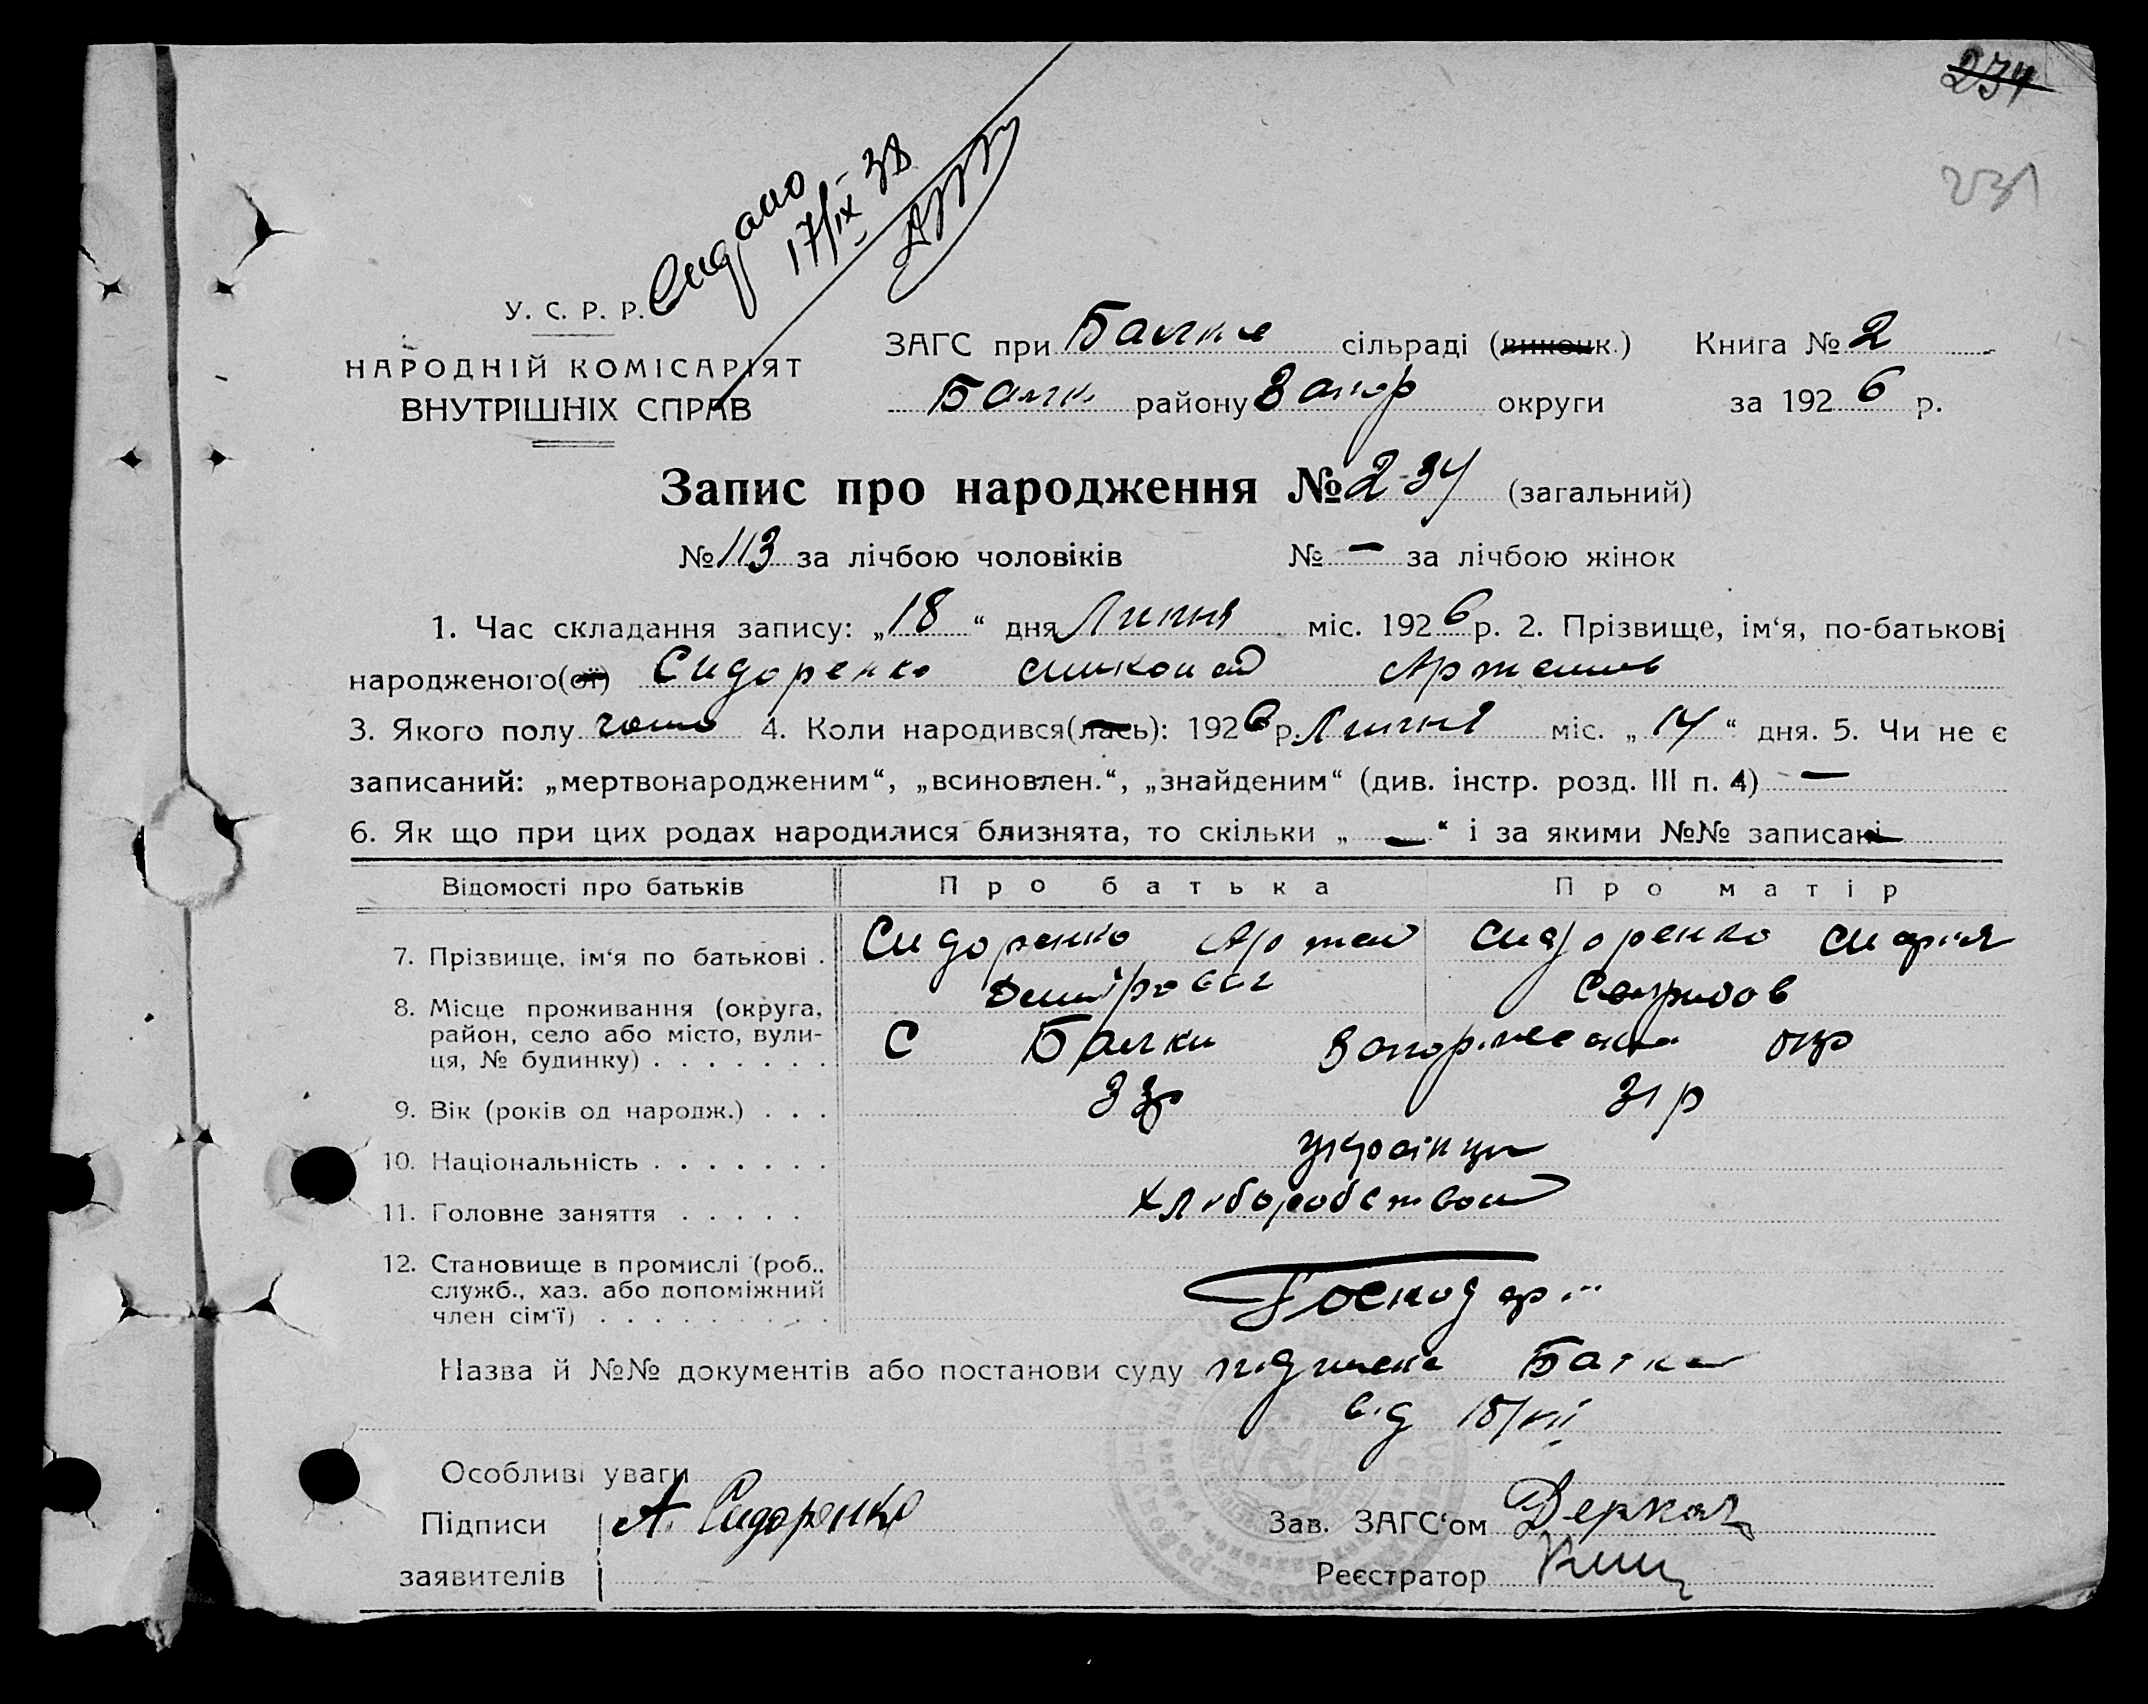 234
231
17/IX-38
У. С. Р. Р.
НАРОДНІЙ КОМІСАРІЯТ
ВНУТРІШНІХ СПРАВ
ЗАГС при Балки сільраді (виконк.) Книга № 2
Балк. району Запор округи за 1926 р.
Запис про народження № 234 (загальний)
№ 113 за лічбою чоловіків № — за лічбою жінок
1. Час складання запису: „18“ дня Липня міс. 1926 р. 2. Прізвище, ім‘я, по-батькові
народженого(ої) Сидоренко
3. Якого полу чоло 4. Коли народився(лась): 1926 р. Липня міс. „14“ дня. 5. Чи не є
записаний: „мертвонародженим“, „всиновлен.“, „знайденим“ (див. інстр. розд. III п. 4) —
6. Як що при цих родах народилися близнята, то скільки „—“ і за якими №№ записані
Відомості про батьків Про батька Про матір
7. Прізвище, ім‘я по батькові . Сидоренко Артем Сидоренко Марія
8. Місце проживання (округа,
район, село або місто, вули-
ця, № будинку) . . . . . . . С Балки окр
9. Вік (років од народж.) . . . 33р 31р
10. Національність . . . . . . . українци
11. Головне заняття . . . . . хліборобством
12. Становище в промислі (роб.,
служб., хаз. або допоміжний
член сім‘ї) . . . . . . . . . Господар
Назва й №№ документів або постанови суду Батка
від 18/VII
Особливі уваги
Підписи А. Сидоренко Зав. ЗАГС‘ом Деркач
заявителів Реєстратор